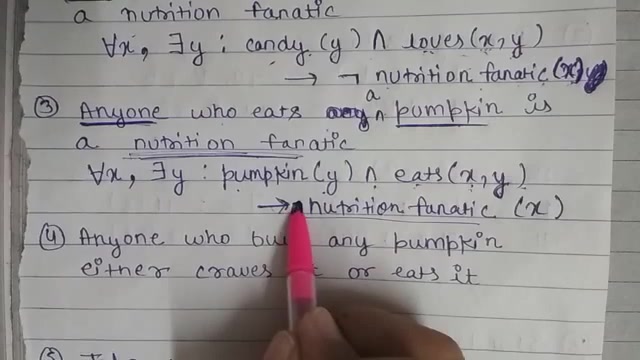 a nutrition fanatic
∀x, ∃y : candy (y) ∧ loves (x, y)
→ ¬ nutrition fanatic (x)
③ Anyone who eats a pumpkin is
a nutrition fanatic
∀x, ∃y : pumpkin (y) ∧ eats (x, y)
→ nutrition fanatic (x)
④ Anyone who any pumpkin
either craves or eats it